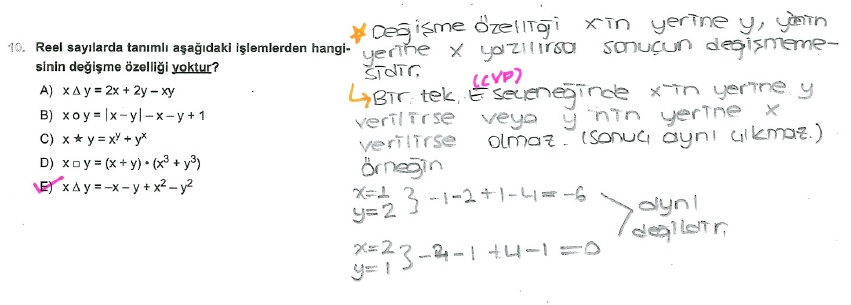 10. Reel sayılarda tanımlı aşağıdaki işlemlerden hangi-
sinin değişme özelliği yoktur?
A) x Δ y = 2x + 2y – xy
B) x o y = |x – y| – x – y + 1
C) x ★ y = xʸ + yˣ
D) x □ y = (x + y) • (x³ + y³)
E) x Δ y = –x – y + x² – y²
★ Değişme özelliği x'in yerine y, y'nin
yerine x yazılırsa sonucun değişmeme-
sidir.
(CVP)
↳ Bir tek, E seçeneğinde x'in yerine y
verilirse veya y'nin yerine x
verilirse olmaz. (sonuç aynı çıkmaz.)
örneğin
x=1
y=2 } -1-2+1-4=-6
aynı
değildir.
x=2
y=1 } -2-1+4-1=0